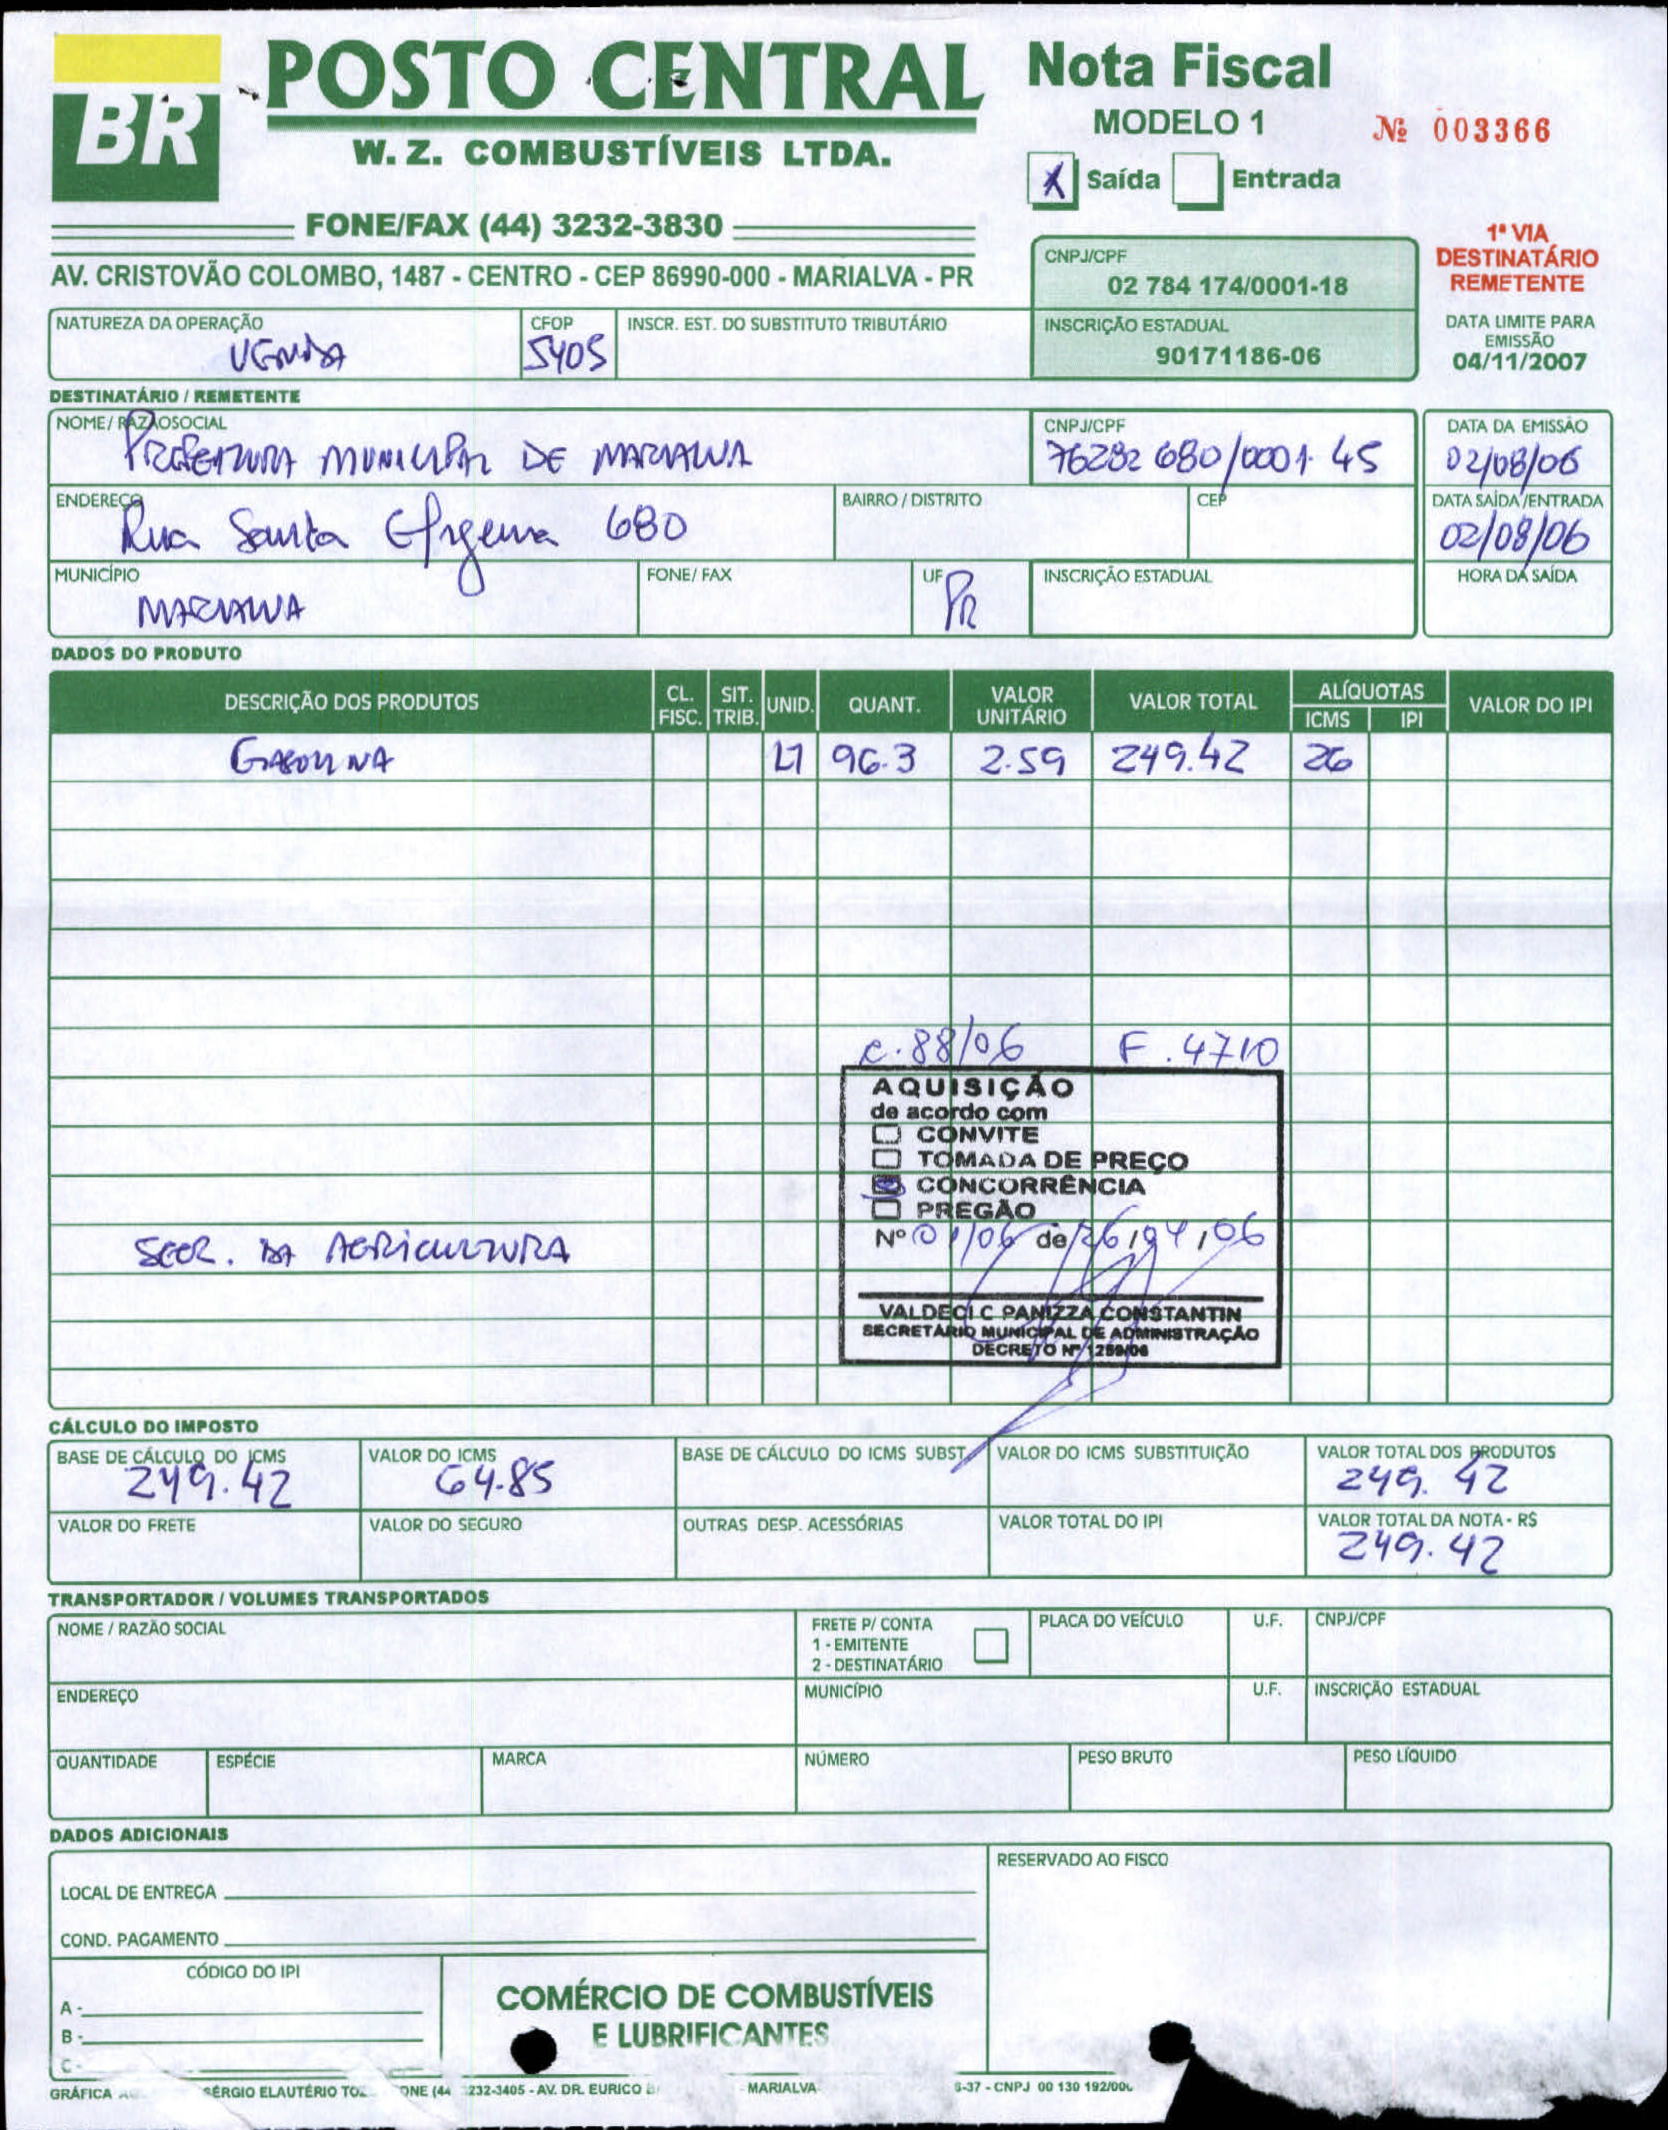 BR
POSTO CENTRAL
W. Z. COMBUSTÍVEIS LTDA.
FONE/FAX (44) 3232-3830
AV. CRISTOVÃO COLOMBO, 1487 - CENTRO - CEP 86990-000 - MARIALVA - PR
Nota Fiscal
MODELO 1
Nº 003366
X Saída Entrada
CNPJ/CPF
02 784 174/0001-18
INSCRIÇÃO ESTADUAL
90171186-06
1ª VIA
DESTINATÁRIO
REMETENTE
DATA LIMITE PARA
EMISSÃO
04/11/2007
NATUREZA DA OPERAÇÃO CFOP INSCR. EST. DO SUBSTITUTO TRIBUTÁRIO
VENDA 5405
DESTINATÁRIO / REMETENTE
NOME/ RAZÃOSOCIAL CNPJ/CPF DATA DA EMISSÃO
PREFEITURA MUNICIPAL DE MARIALVA 76282 680/0001-45 02/08/06
ENDEREÇO BAIRRO / DISTRITO CEP DATA SAÍDA/ENTRADA
Rua Santa Efigenia 680 02/08/06
MUNICÍPIO FONE/ FAX UF INSCRIÇÃO ESTADUAL HORA DA SAÍDA
MARIALVA PR
DADOS DO PRODUTO
DESCRIÇÃO DOS PRODUTOS CL. FISC. SIT. TRIB. UNID. QUANT. VALOR UNITÁRIO VALOR TOTAL ALÍQUOTAS ICMS IPI VALOR DO IPI
GASOLINA 96.3 2.59 249.42 26
C. 88/06 F. 4710
AQUISIÇÃO
de acordo com
CONVITE
TOMADA DE PREÇO
CONCORRÊNCIA
PREGÃO
Nº 01/06 de 26/04/06
SECR. DA AGRICULTURA
VALDECI C PANIZZA CONSTANTIN
SECRETÁRIO MUNICIPAL DE ADMINISTRAÇÃO
DECRETO Nº 1259/06
CÁLCULO DO IMPOSTO
BASE DE CÁLCULO DO ICMS VALOR DO ICMS BASE DE CÁLCULO DO ICMS SUBST. VALOR DO ICMS SUBSTITUIÇÃO VALOR TOTAL DOS PRODUTOS
249.42 64.85 249.42
VALOR DO FRETE VALOR DO SEGURO OUTRAS DESP. ACESSÓRIAS VALOR TOTAL DO IPI VALOR TOTAL DA NOTA - R$
249.42
TRANSPORTADOR / VOLUMES TRANSPORTADOS
NOME / RAZÃO SOCIAL FRETE P/ CONTA PLACA DO VEÍCULO U.F. CNPJ/CPF
1 - EMITENTE
2 - DESTINATÁRIO
ENDEREÇO MUNICÍPIO U.F. INSCRIÇÃO ESTADUAL
QUANTIDADE ESPÉCIE MARCA NÚMERO PESO BRUTO PESO LÍQUIDO
DADOS ADICIONAIS
RESERVADO AO FISCO
LOCAL DE ENTREGA
COND. PAGAMENTO
CÓDIGO DO IPI
A -
B -
C -
COMÉRCIO DE COMBUSTÍVEIS
E LUBRIFICANTES
GRÁFICA SÉRGIO ELAUTÉRIO 232-3405 - AV. DR. EURICO MARIALVA -37 - CNPJ 00 130 192/